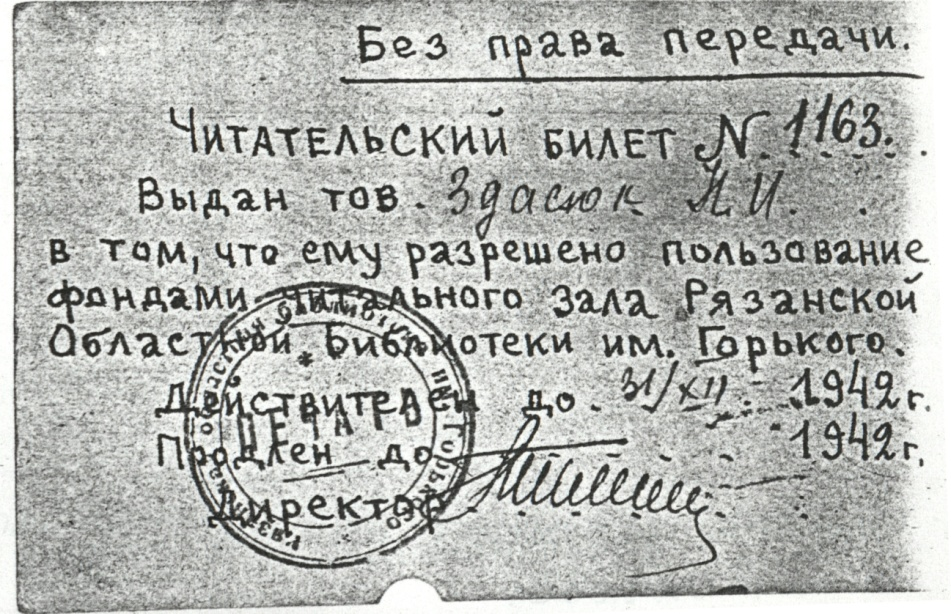 Без права передачи.
Читательский билет N. 1163.
Выдан тов. Здасюк
в том, что ему разрешено пользование
фондами читального зала Рязанской
Областной Библиотеки им. Горького.
Действителен до 31/XII 1942 г.
Продлен до 1942 г.
Директор